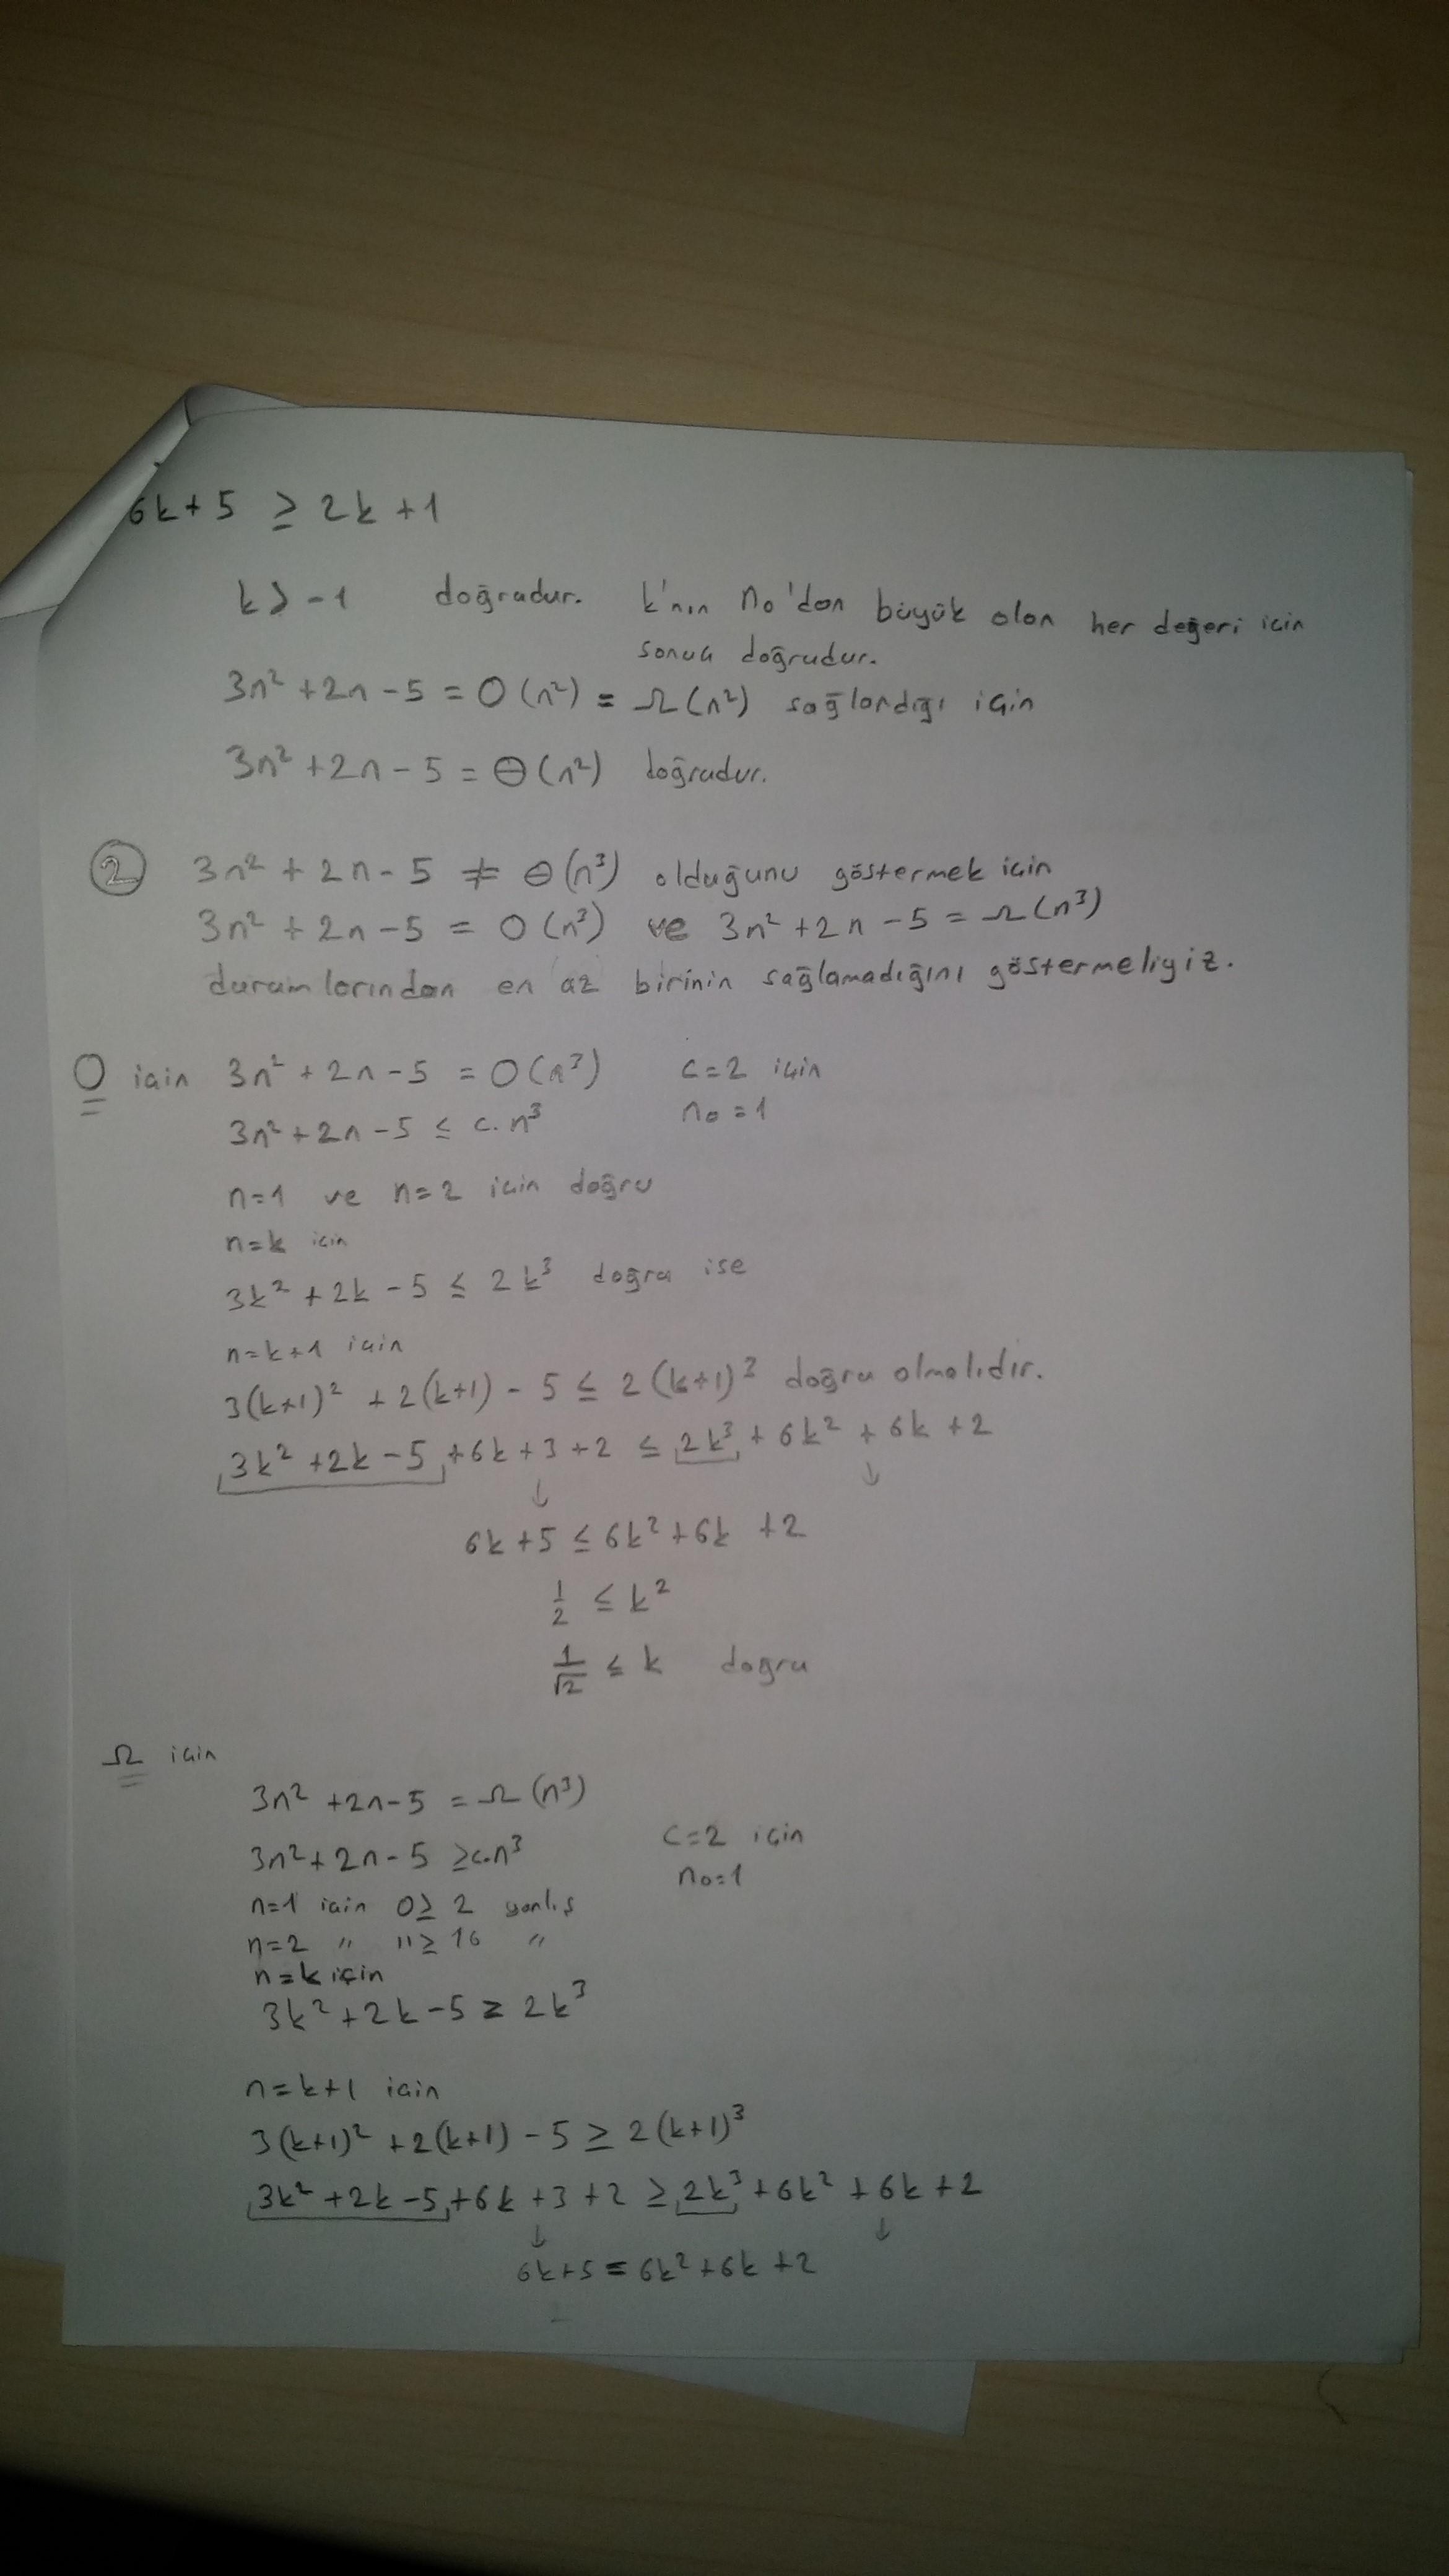 6k+5 ≥ 2k+1
k ≥ -1 doğrudur. k'nın n₀'dan büyük olan her değeri için
sonuç doğrudur.
3n² +2n-5 = O(n²) = Ω(n²) sağlandığı için
3n² +2n-5 = Θ(n²) doğrudur.
② 3n² + 2n-5 ≠ Θ(n³) olduğunu göstermek için
3n² + 2n-5 = O(n³) ve 3n² +2n-5 = Ω(n³)
durumlarından en az birinin sağlamadığını göstermeliyiz.
O için 3n² + 2n-5 = O(n³) c=2 için
3n² + 2n-5 ≤ c.n³ n₀=1
n=1 ve n=2 için doğru
n=k için
3k² +2k-5 ≤ 2k³ doğru ise
n=k+1 için
3(k+1)² +2(k+1)-5 ≤ 2(k+1)³ doğru olmalıdır.
3k² +2k-5+6k+3+2 ≤ 2k³+6k²+6k+2
↓ ↓
6k+5 ≤ 6k²+6k+2
1/2 ≤ k²
1/√2 ≤ k doğru
Ω için
3n² +2n-5 = Ω(n³)
3n²+2n-5 ≥c.n³ c=2 için
n₀=1
n=1 için 0≥2 yanlış
n=2 " 11≥16 "
n=k için
3k²+2k-5 ≥ 2k³
n=k+1 için
3(k+1)² +2(k+1)-5 ≥ 2(k+1)³
3k² +2k-5+6k+3+2 ≥ 2k³+6k²+6k+2
↓ ↓
6k+5 = 6k²+6k+2